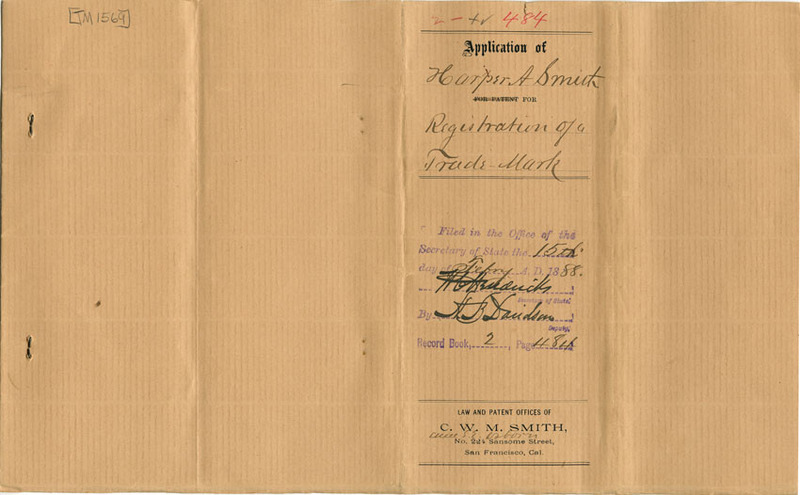 [TM 1569]
2 - 484
Application of
Harper A Smith
FOR PATENT FOR
Registration of a
Trade-Mark
Filed in the Office of the
Secretary of State the 15th
day of Febry A. D. 1888.
W C Hendricks
Secretary of State
By A B Davidson
Deputy.
Record Book, 2, Page 484
LAW AND PATENT OFFICES OF
C. W. M. SMITH,
Osborn
No. 224 Sansome Street,
San Francisco, Cal.